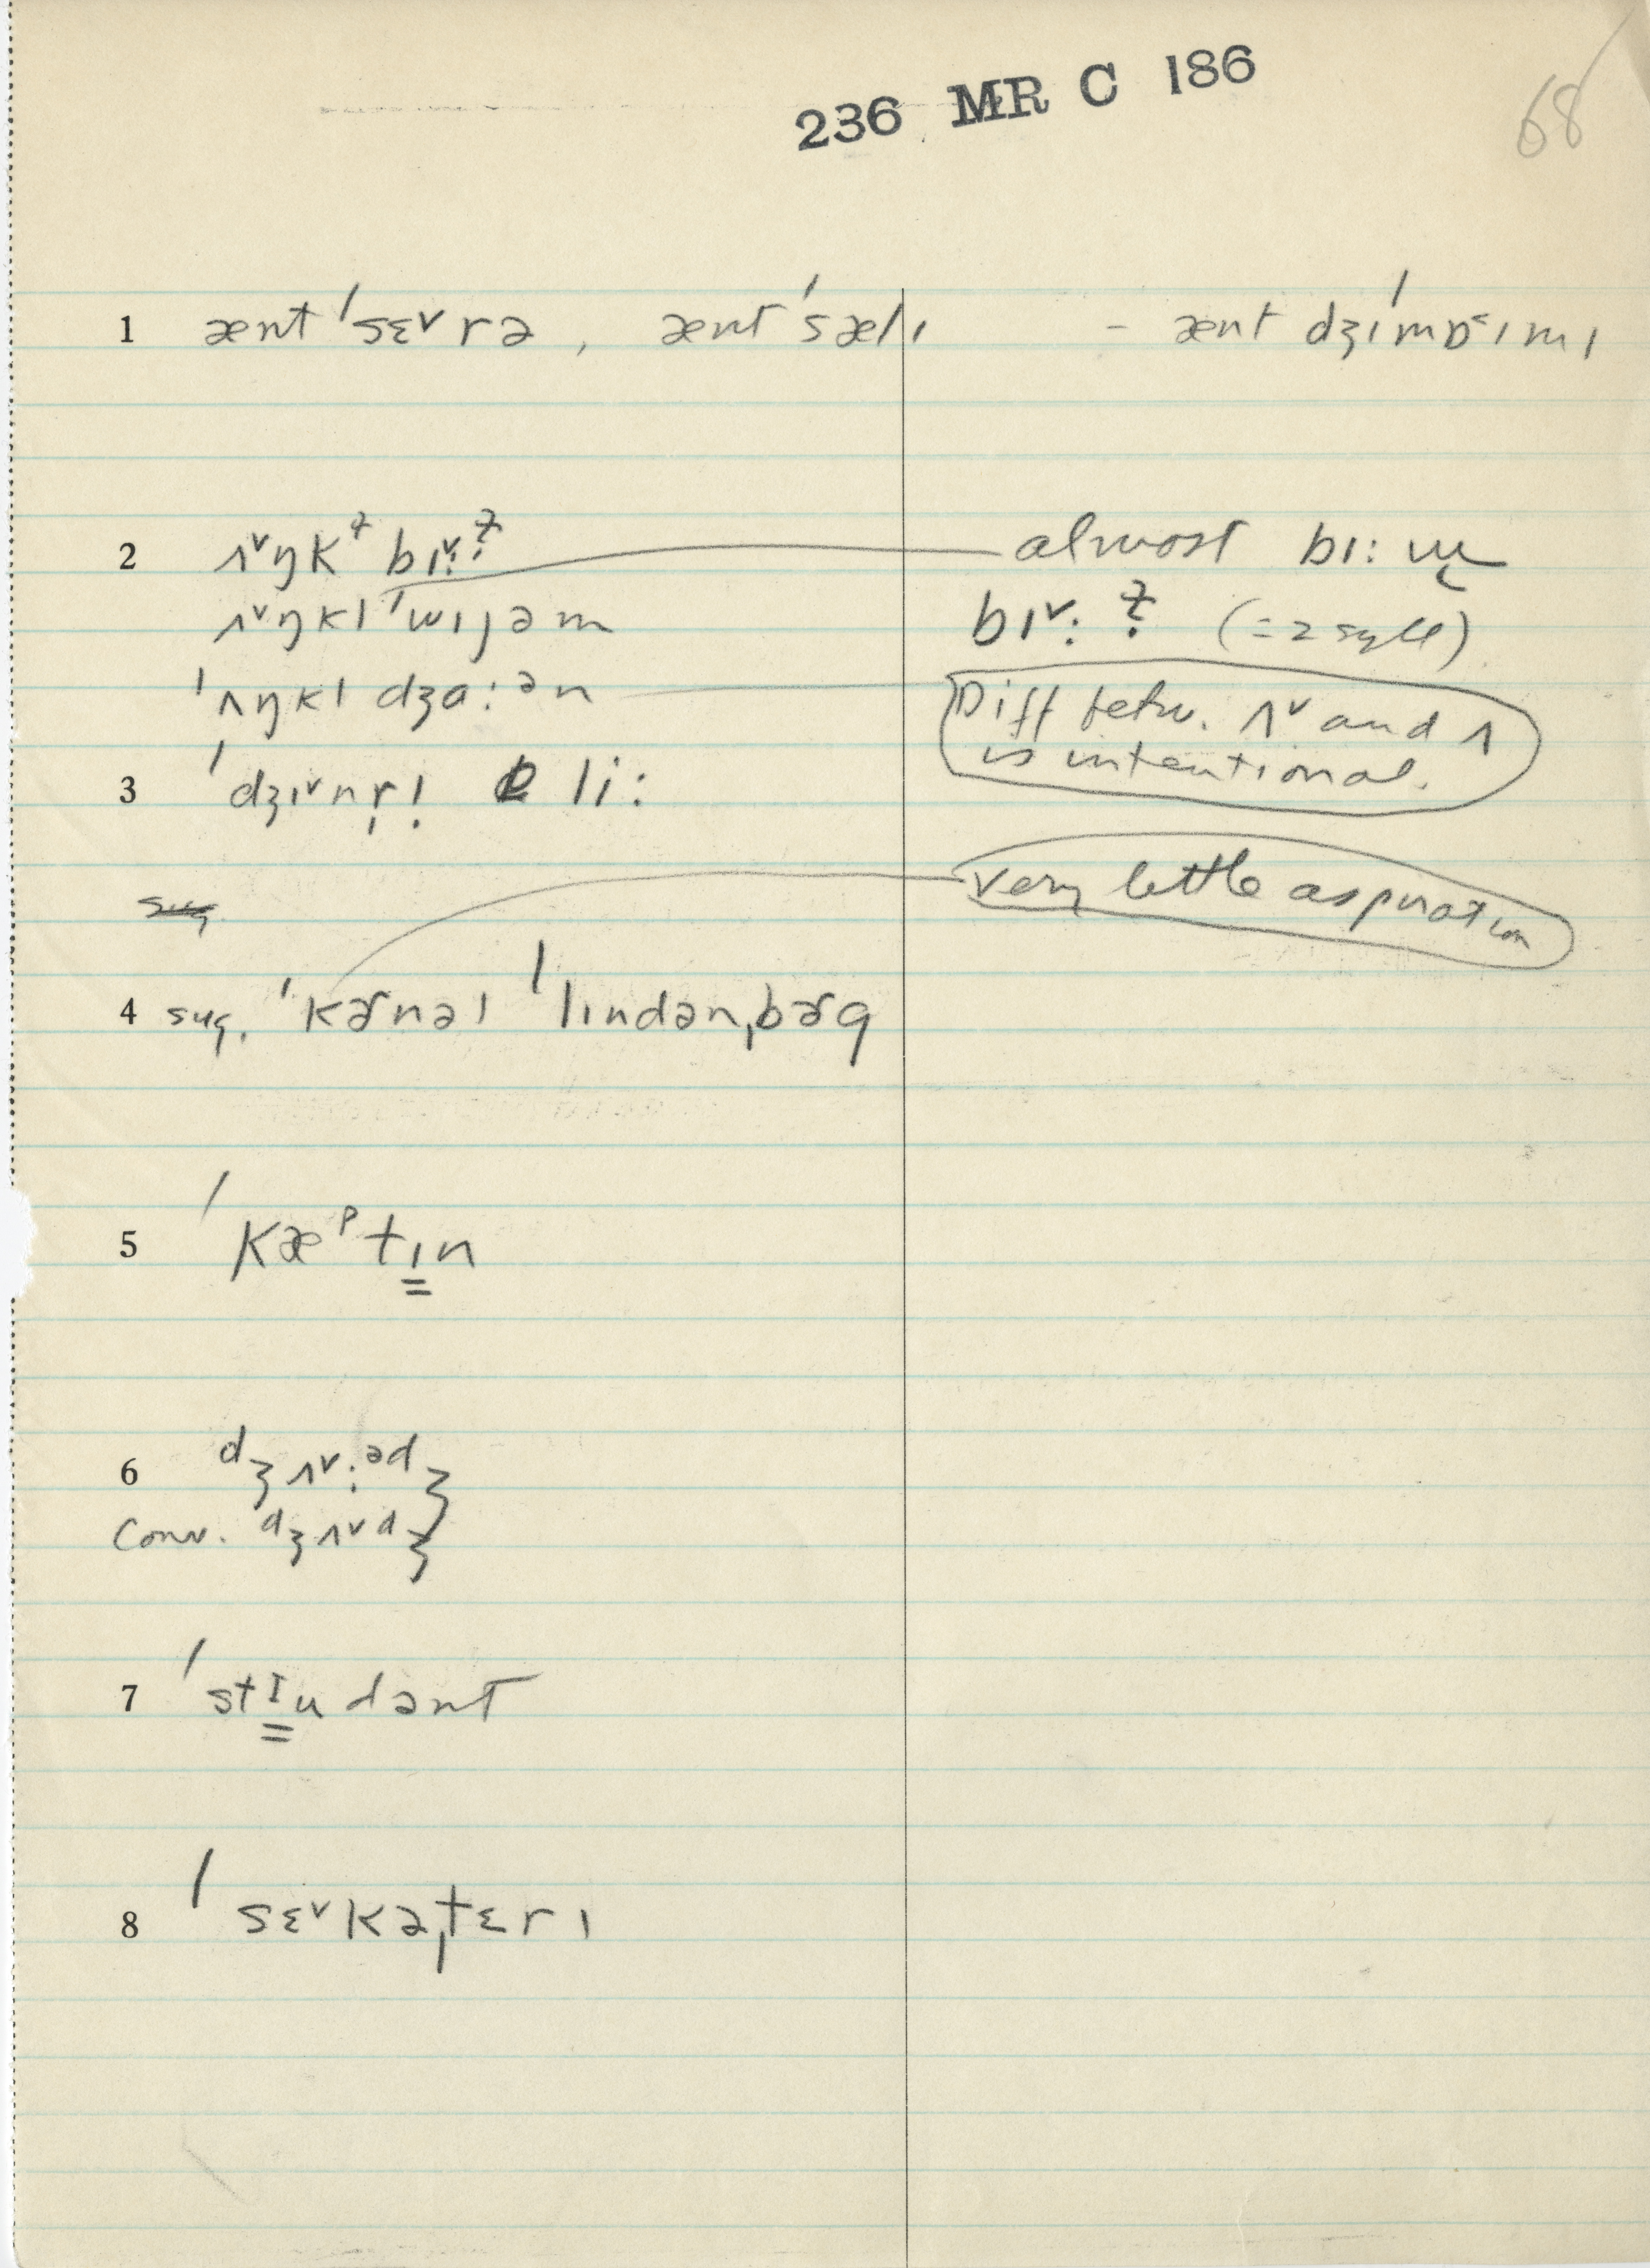 236 MR C 186
68
1 ænt ˈsɛ˅rə, ænt ˈsælɪ - ænt dʒɪˈmɒ˂ɪmɪ
2 ʌ˅ŋkᵻ bɪ˅:ᵻ̣ almost bɪ: ɯ
ʌ˅ŋkl ˈwɪjəm bɪ˅: ᵻ̣ (=2 syll)
ˈʌŋkl dʒɑ:ᵊn Diff betw. ʌ˅ and ʌ
is intentional.
3 ˈdʒɪ˅nr̩l̩ li:
very little aspiration
4 sug. ˈkɚnəl ˈlɪndənˌbɚg
5 ˈkæᵖtɪn
6 dʒʌ˅:ᵊdʒ
Conv. dʒʌ˅dʒ
7 ˈstɪudənt
8 ˈsɛ˅kəˌtɛrɪ